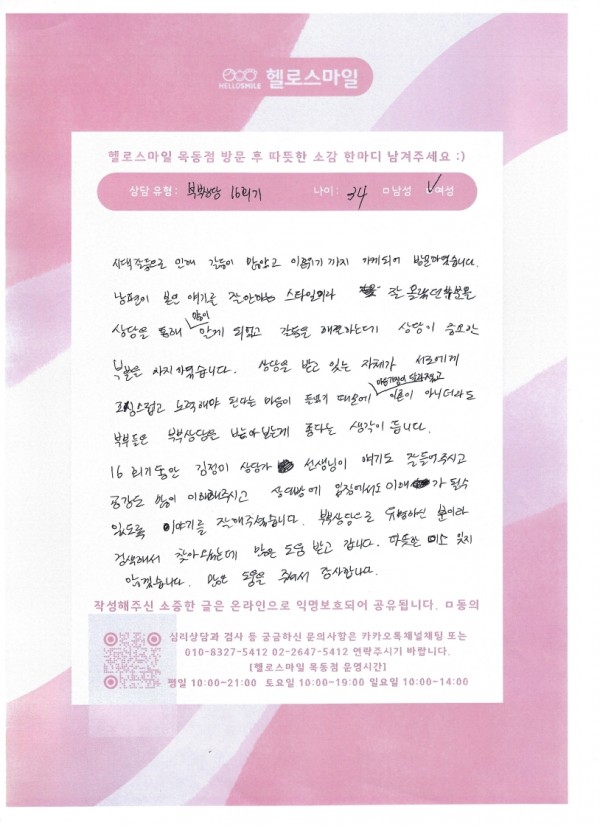 HELLOSMILE 헬로스마일
헬로스마일 목동점 방문 후 따뜻한 소감 한마디 남겨주세요 :)
상담 유형 : 부부상담 16회기 나이 : 34 ㅁ남성 ㅁ여성
시댁갈등으로 인해 갈등이 많았고 이혼위기까지 가게되어 방문하였습니다.
남편이 본인 얘기를 잘안하는 스타일이라 잘 몰랐던부분을
많이
상담을 통해 알게 되었고 갈등을 해결하는데 상담이 중요한
부분을 차지하였습니다. 상담을 받고 있는 자체가 서로에게
마음가짐이 달라졌고
조심스럽고 노력해야 된다는 마음이 들었기 때문에 이혼이 아니더라도
부부들은 부부상담은 받아보는게 좋다는 생각이 듭니다.
16회기동안 김정미 상담가 선생님이 얘기도 잘들어주시고
공감도 많이 이해해주시고 상대방에 입장에서도 이해가 될수
있도록 이야기를 잘해주셨습니다. 부부상담으로 유명하신 분이라
검색해서 찾아왔는데 많은 도움 받고 갑니다. 따뜻한 미소 잊지
않겠습니다. 많은 도움을 주셔서 감사합니다.
작성해주신 소중한 글은 온라인으로 익명보호되어 공유됩니다. ㅁ동의
심리상담과 검사 등 궁금하신 문의사항은 카카오톡채널채팅 또는
010-8327-5412 02-2647-5412 연락주시기 바랍니다.
[헬로스마일 목동점 운영시간]
평일 10:00~21:00 토요일 10:00~19:00 일요일 10:00~14:00